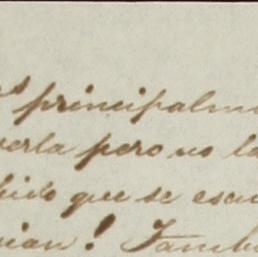 principalme
verla pero no la
bido que se esc
ian! Tamb